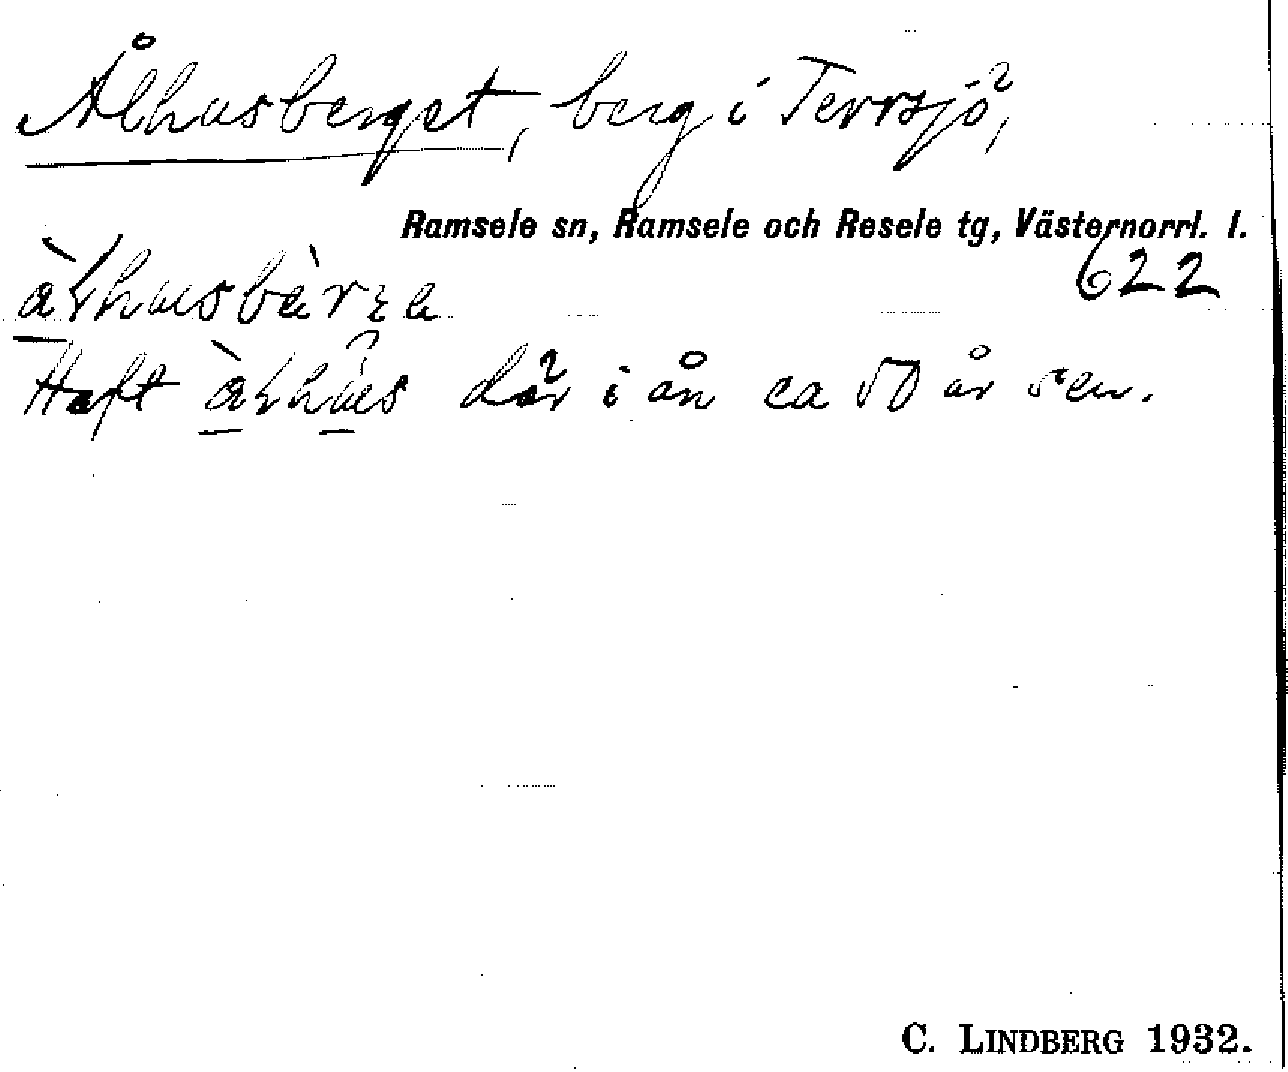 Ålhusberget, berg i Terrsjö,
Ramsele sn, Ramsele och Resele tg, Västernorrl. l.
622
Haft där i ån ca 50 år sen.
C. LINDBERG 1932.